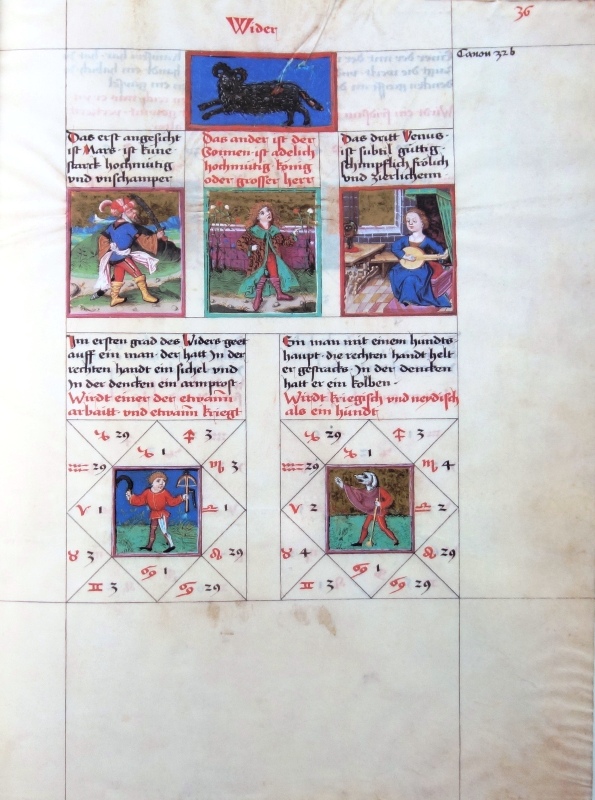 Wider
36
Canon 32 b
Das erst angesicht
ist Mars · ist kune
starck hochmutig
vnd vnschamper
Das ander ist der
Sonnen · ist adelich
hochmutig konig
oder grosser herr
Das dritt Venus ·
ist subtil guttig
schimpflich frolich
vnd zierlichenn
Im ersten grad des Widers geet
auff ein man · der hatt Jn der
rechten handt ein sichel vnd
Jn der dencken ein armprost ·
Wirdt einer der etwann
arbaitt · vnd etwann kriegt
Ein man mit einem hundts
haupt · die rechten handt helt
er gestracks · Jn der dencken
hatt er ein kolben ·
Wirdt kriegisch vnd neydisch
als ein hundt
♑ 29 ♐ 3
♑ 1
♒ 29 ♏ 3
♈ 1 ♎ 1
♉ 3 ♌ 29
♋ 1
♊ 3 ♋ 29
♑ 29 ♐ 3
♑ 1
♒ 29 ♏ 4
♈ 2 ♎ 2
♉ 4 ♌ 29
♋ 1
♊ 3 ♋ 29